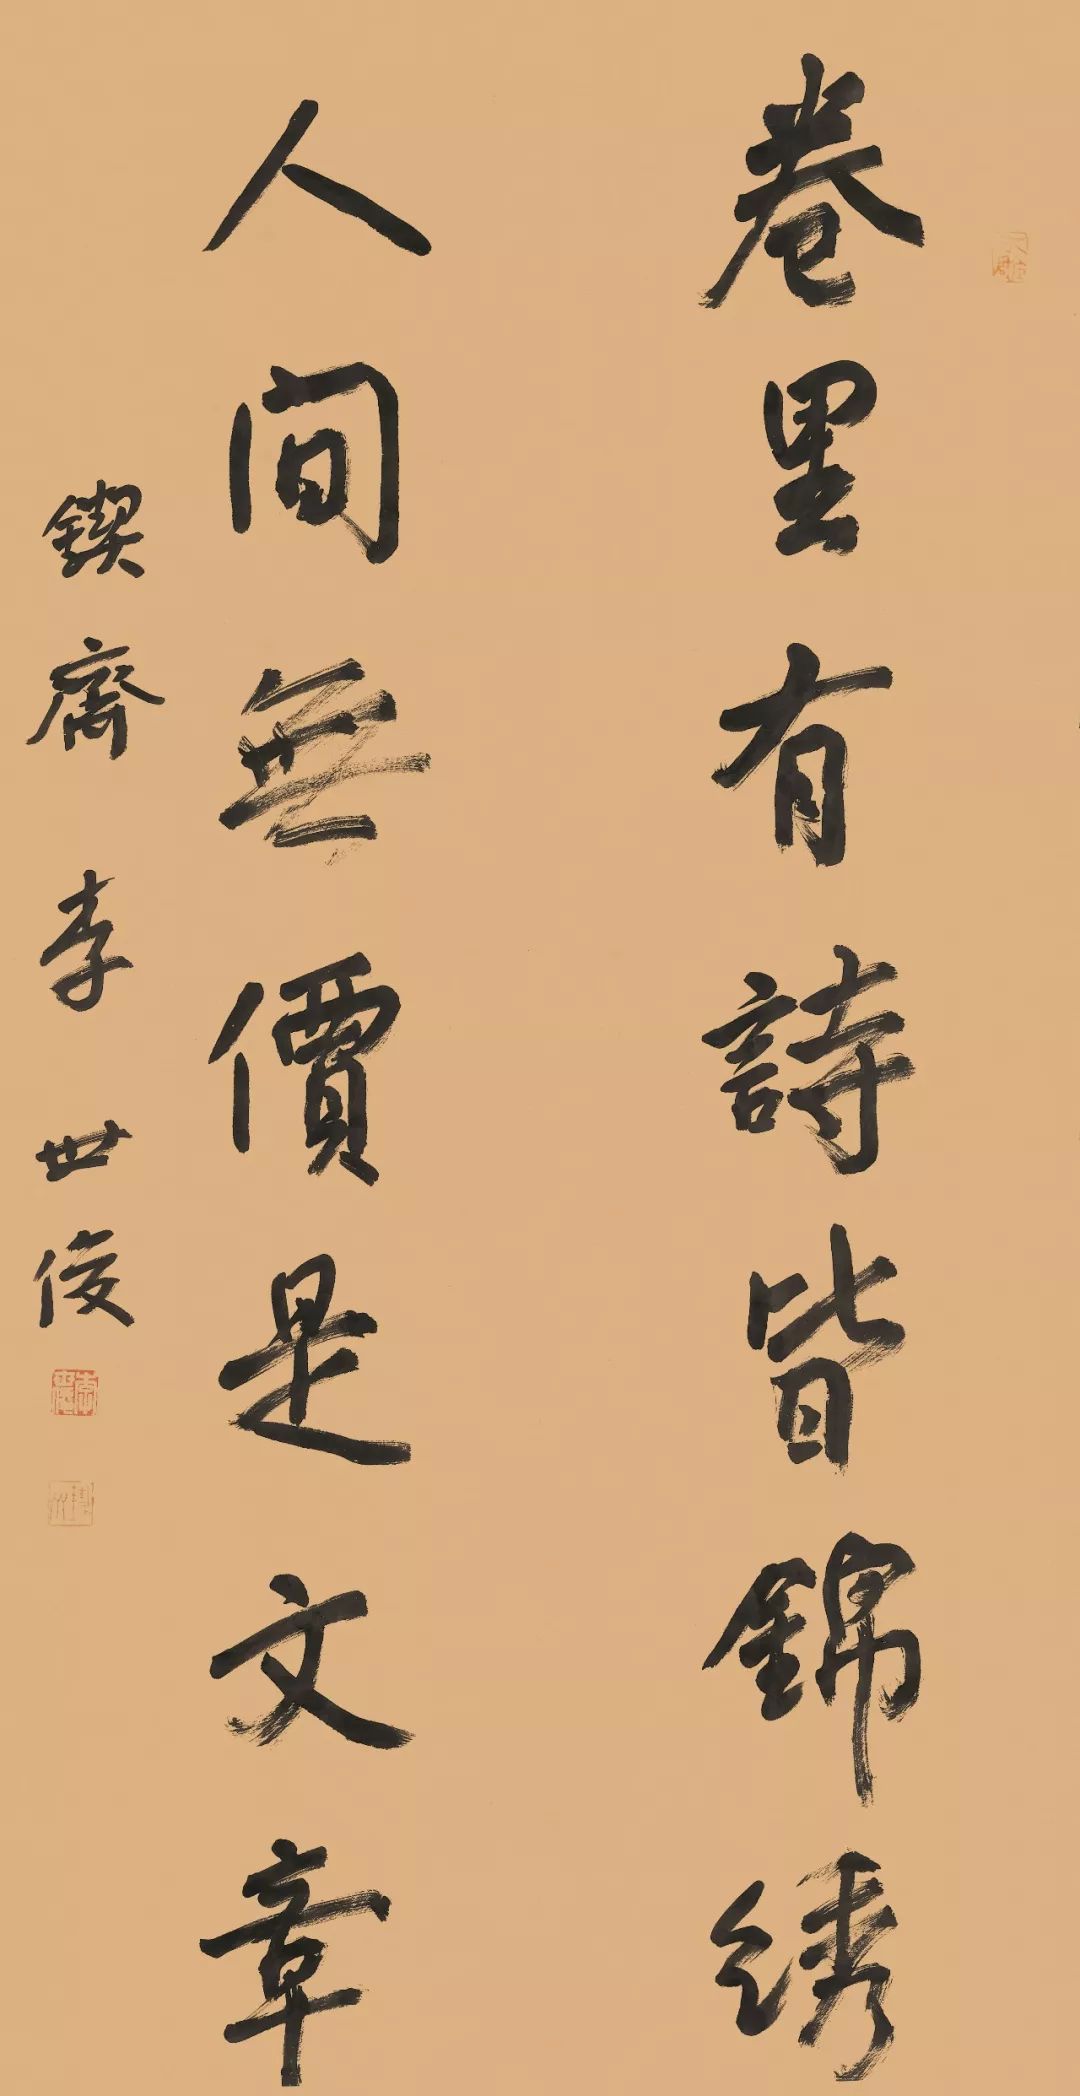 卷里有詩皆錦绣
人间無價是文章
鍥齋李世俊